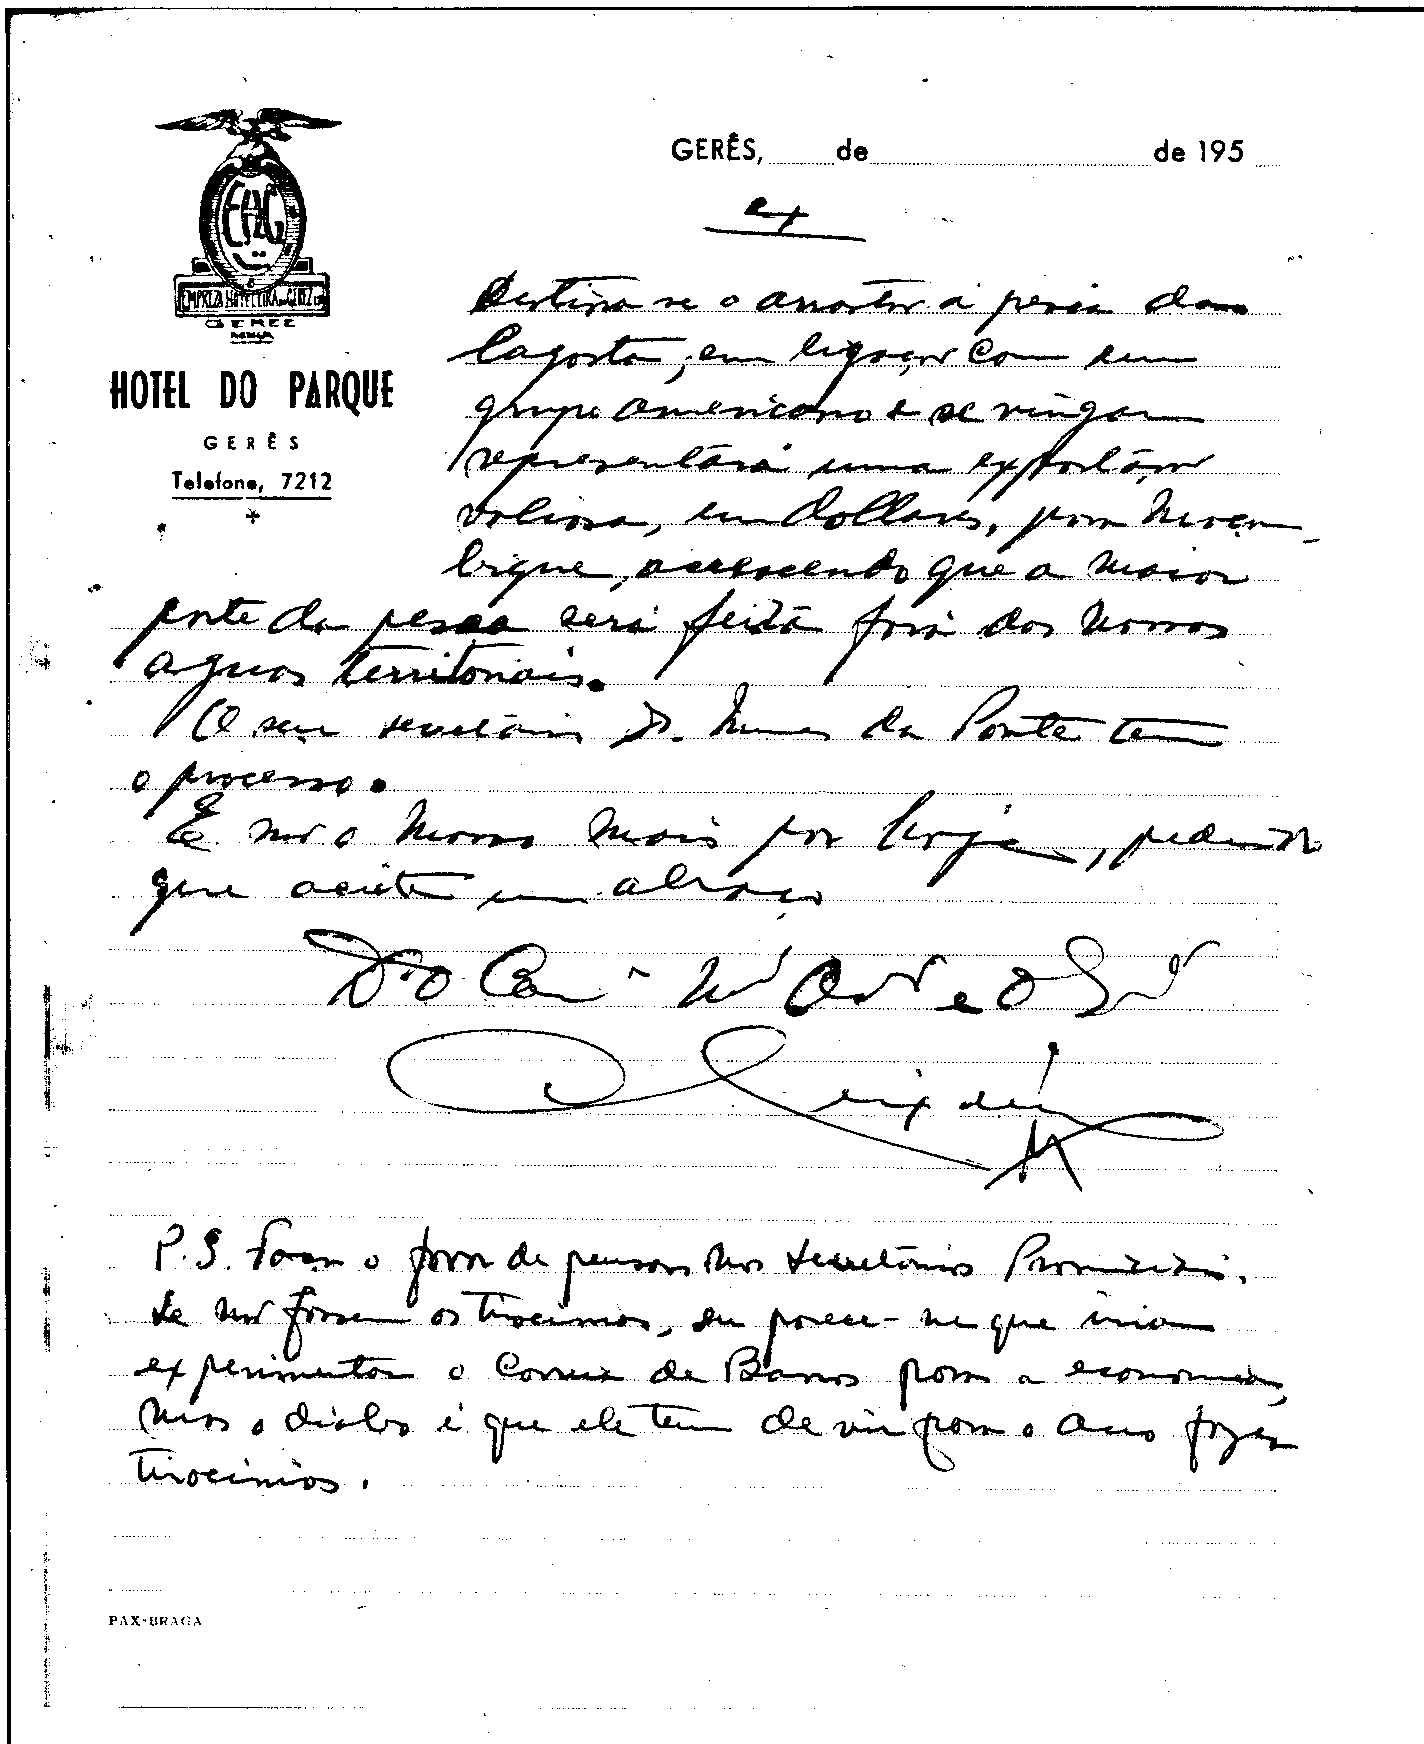 GERÊS, de de 195
EHG
EMPREZA HOTELEIRA DO GEREZ
GEREZ
HOTEL DO PARQUE
GERÊS
Telefone, 7212
Destina se o arrastar à pesca da
lagosta, em ligação com um
grupo americano e se vingar
representará uma exportação
valiosa, em dollares, para Moçam-
bique, acrescendo que a maior
parte da pesca será feita fora das nossas
aguas territoriais.
O seu secretário Dr. Nunes da Ponte tem
o processo.
E não o maço mais por hoje, pedindo
que aceite um abraço
Do
P.S. Faça o favor de pensar nos secretários Provinciais.
Se não fossem os tirocinios, eu parece-me que iria
experimentar o Correia de Barros para a economia,
mas o diabo é que ele tem de vir para o ano fazer
tirocinios.
PAX-BRAGA